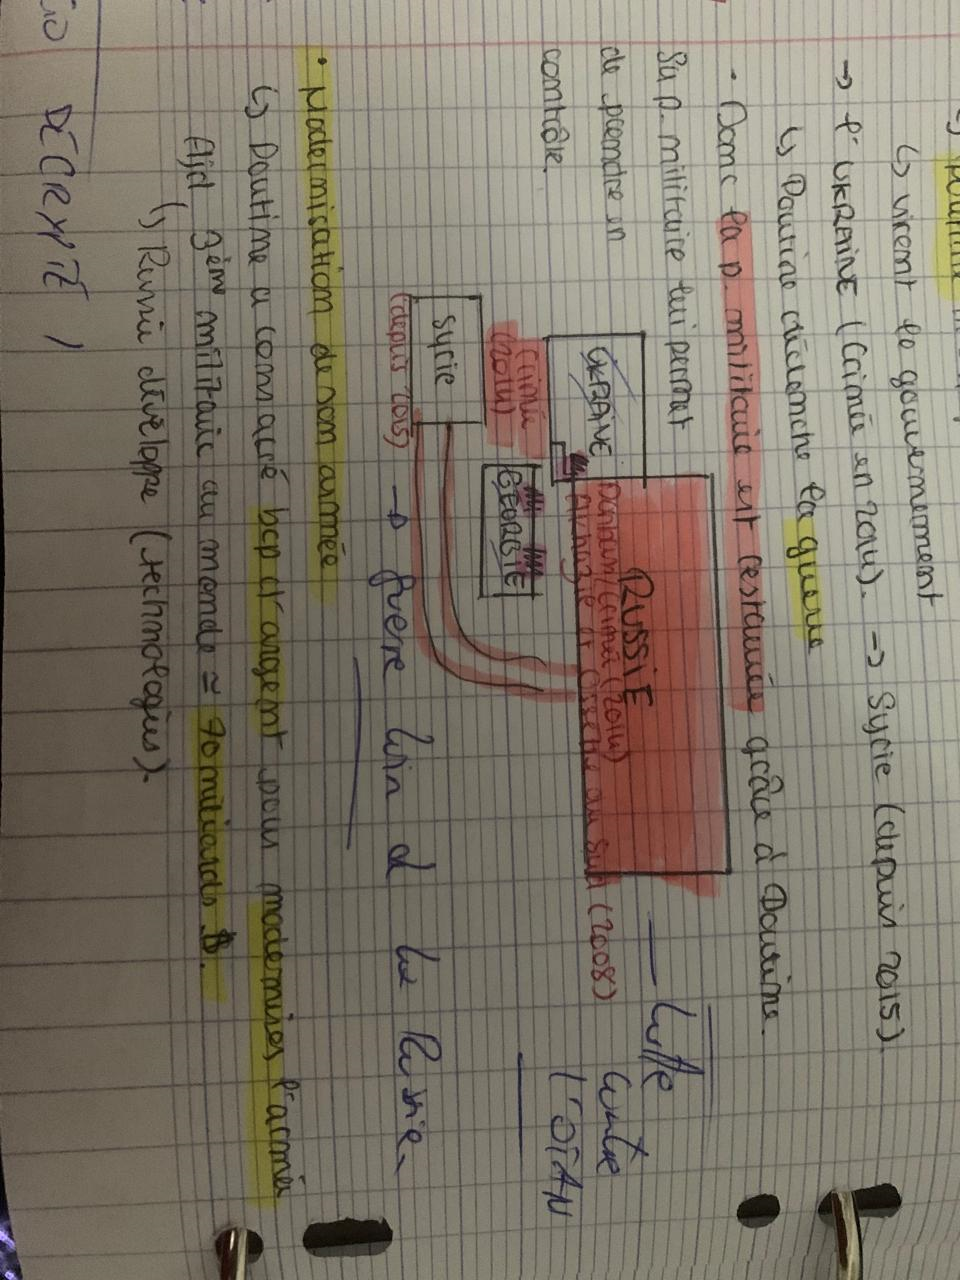 ↳ virent le gouvernement
→ l'UKRAINE (Crimée en 2014). → Syrie (depuis 2015).
↳ Poutine déclenche la guerre
• Donc la p. militaire est restaurée grâce à Poutine.
Sa p. militaire lui permet
de prendre en
contrôle.
RUSSIE
Donbass/Crimée (2014)
Abkhazie et Ossétie du Sud (2008)
UKRAINE
Crimée
(2014)
GÉORGIE
Syrie
(depuis 2015)
— Lutte
contre
l'OTAN
→ guerre loin d la Russie.
• Modernisation de son armée
↳ Poutine a consacré bcp d'argent pour moderniser l'armée
Ajd, 3èm militaire au monde ≃ 70 miliards $.
↳ Russie développe (technologies).
DÉCRYPTÉ